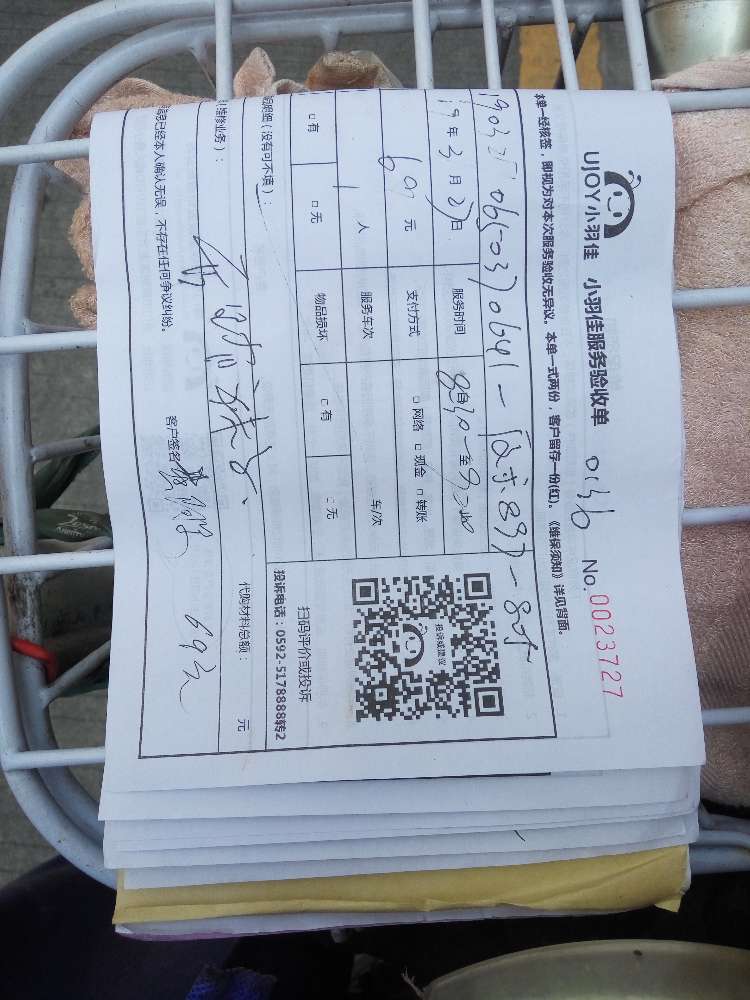 UJOY小羽佳 小羽佳服务验收单 0136 No.0023727
本单一经核签，即视为对本次服务验收无异议。本单一式两份，客户留存一份(红)。《维保须知》详见背面。
19年3月27日 服务时间 8:40 至 9:40
69 元 支付方式 □网络 □现金 □转账
1 人 服务车次 车/次
□有 □无 物品损坏 □有 □无
投诉或建议
扫码评价或投诉
投诉电话：0592-5178888转2
明细（没有可不填）：
维修业务）： 代购材料总额： 元
已经本人确认无误，不存在任何争议纠纷。 客户签名 69元